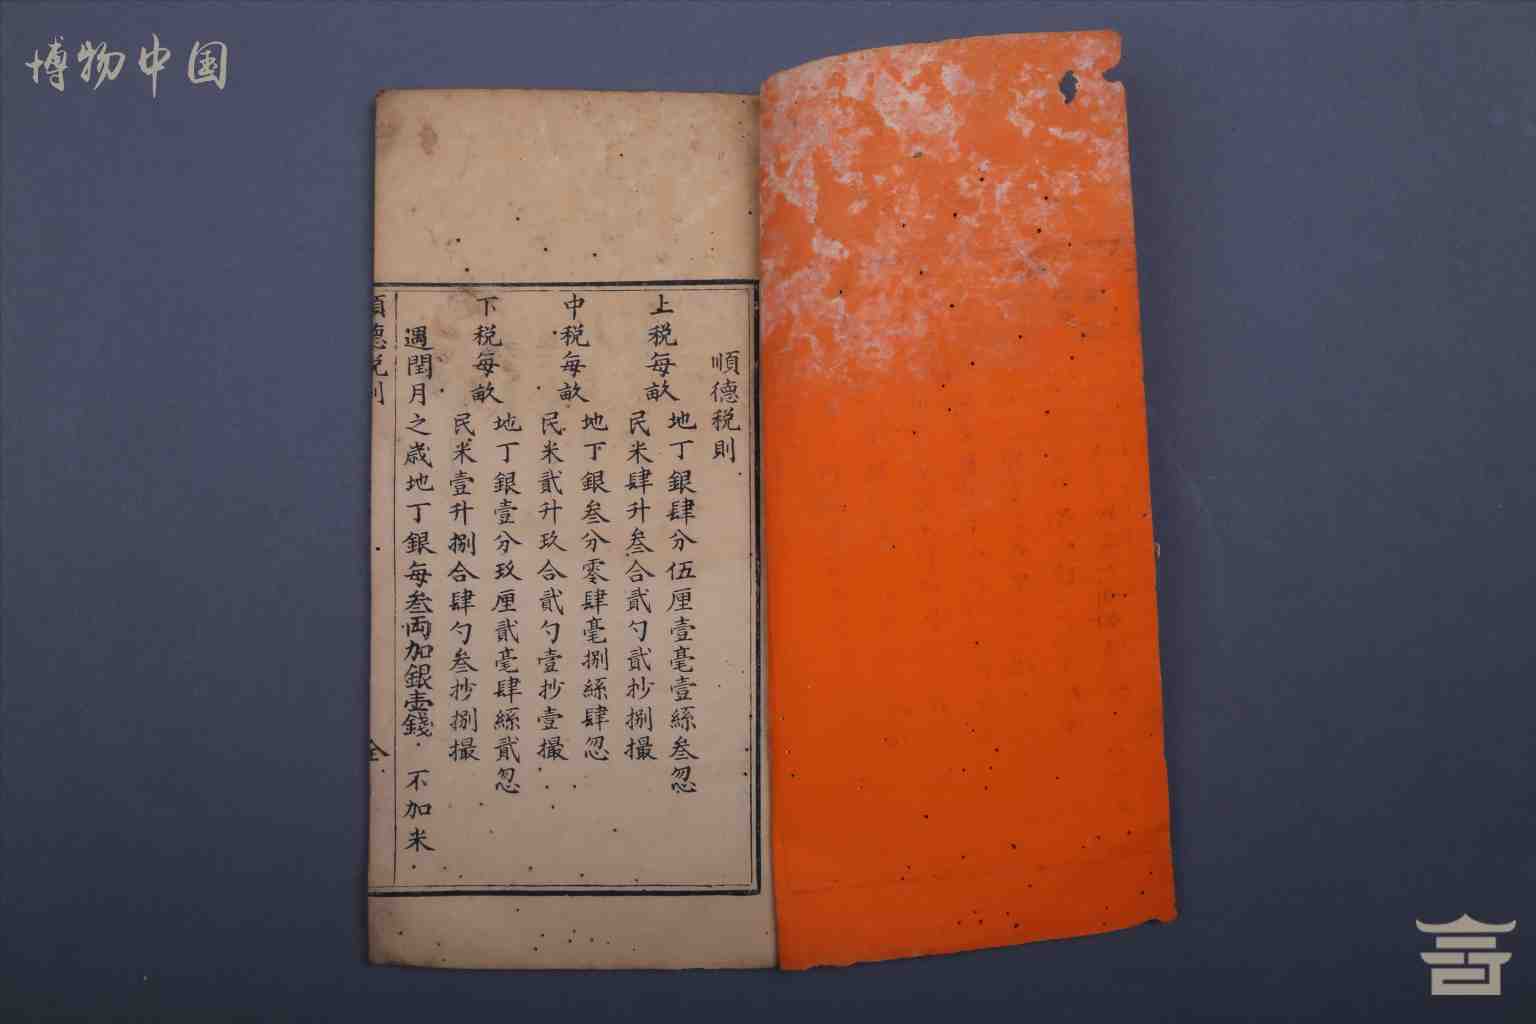 博物中国
順德税則
上税每畝
地丁銀肆分伍厘壹毫壹絲叁忽
民米肆升叁合貳勺貳抄捌撮
中税每畝
地丁銀叁分零肆毫捌絲肆忽
民米貳升玖合貳勺壹抄壹撮
下税每畝
地丁銀壹分玖厘貳毫肆絲貳忽
民米壹升捌合肆勺叁抄捌撮
遇閏月之歳地丁銀每叁両加銀壹錢 不加米
順德税則 全